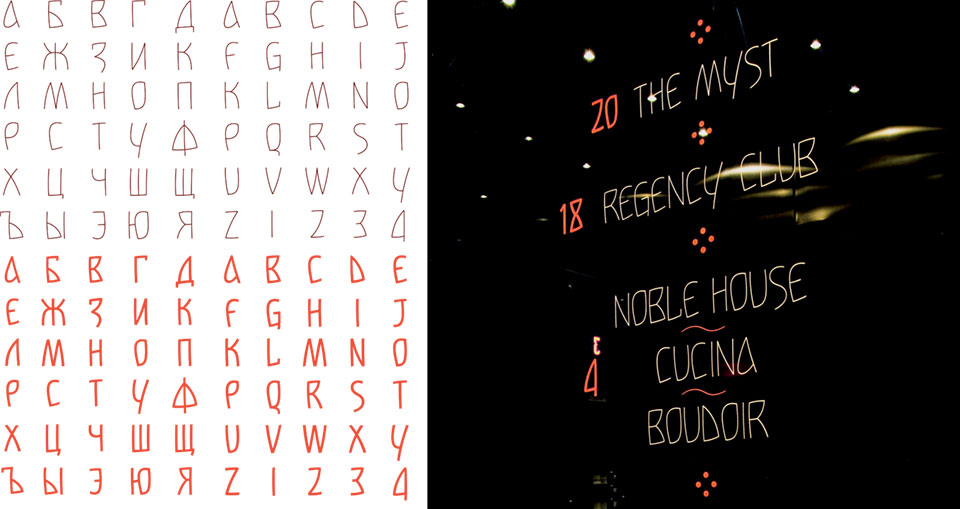 А Б В Г Д A B C D E
Е Ж З И К F G H I J
Л М Н О П K L M N O
Р С Т У Ф P Q R S T
Х Ц Ч Ш Щ U V W X Y
Ъ Ы Э Ю Я Z 1 2 3 4
А Б В Г Д A B C D E
Е Ж З И К F G H I J
Л М Н О П K L M N O
Р С Т У Ф P Q R S T
Х Ц Ч Ш Щ U V W X Y
Ъ Ы Э Ю Я Z 1 2 3 4
20 THE MYST
18 REGENCY CLUB
NOBLE HOUSE
4 CUCINA
BOUDOIR